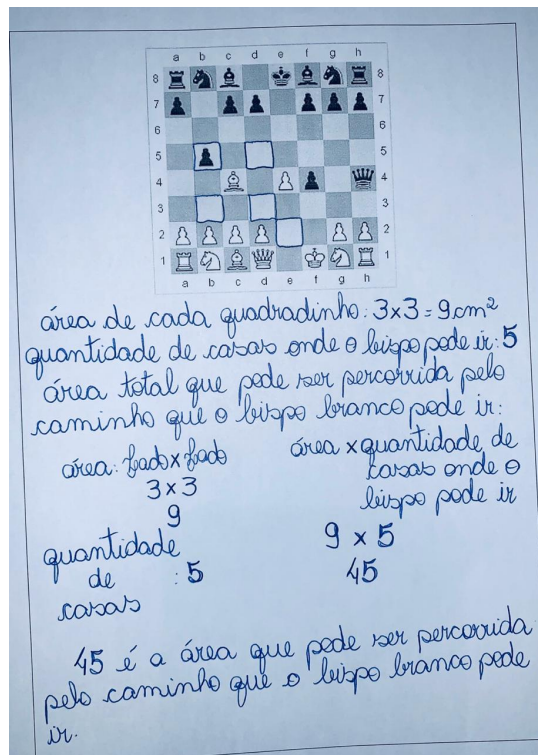 a b c d e f g h
8 8
7 7
6 6
5 5
4 4
3 3
2 2
1 1
a b c d e f g h
área de cada quadradinho: 3x3 = 9cm²
quantidade de casas onde o bispo pode ir: 5
área total que pode ser percorrida pelo
caminho que o bispo branco pode ir:
área: lado x lado
3 x 3
9
quantidade
de : 5
casas
área x quantidade de
casas onde o
bispo pode ir
9 x 5
45
45 é a área que pode ser percorrida
pelo caminho que o bispo branco pode
ir.